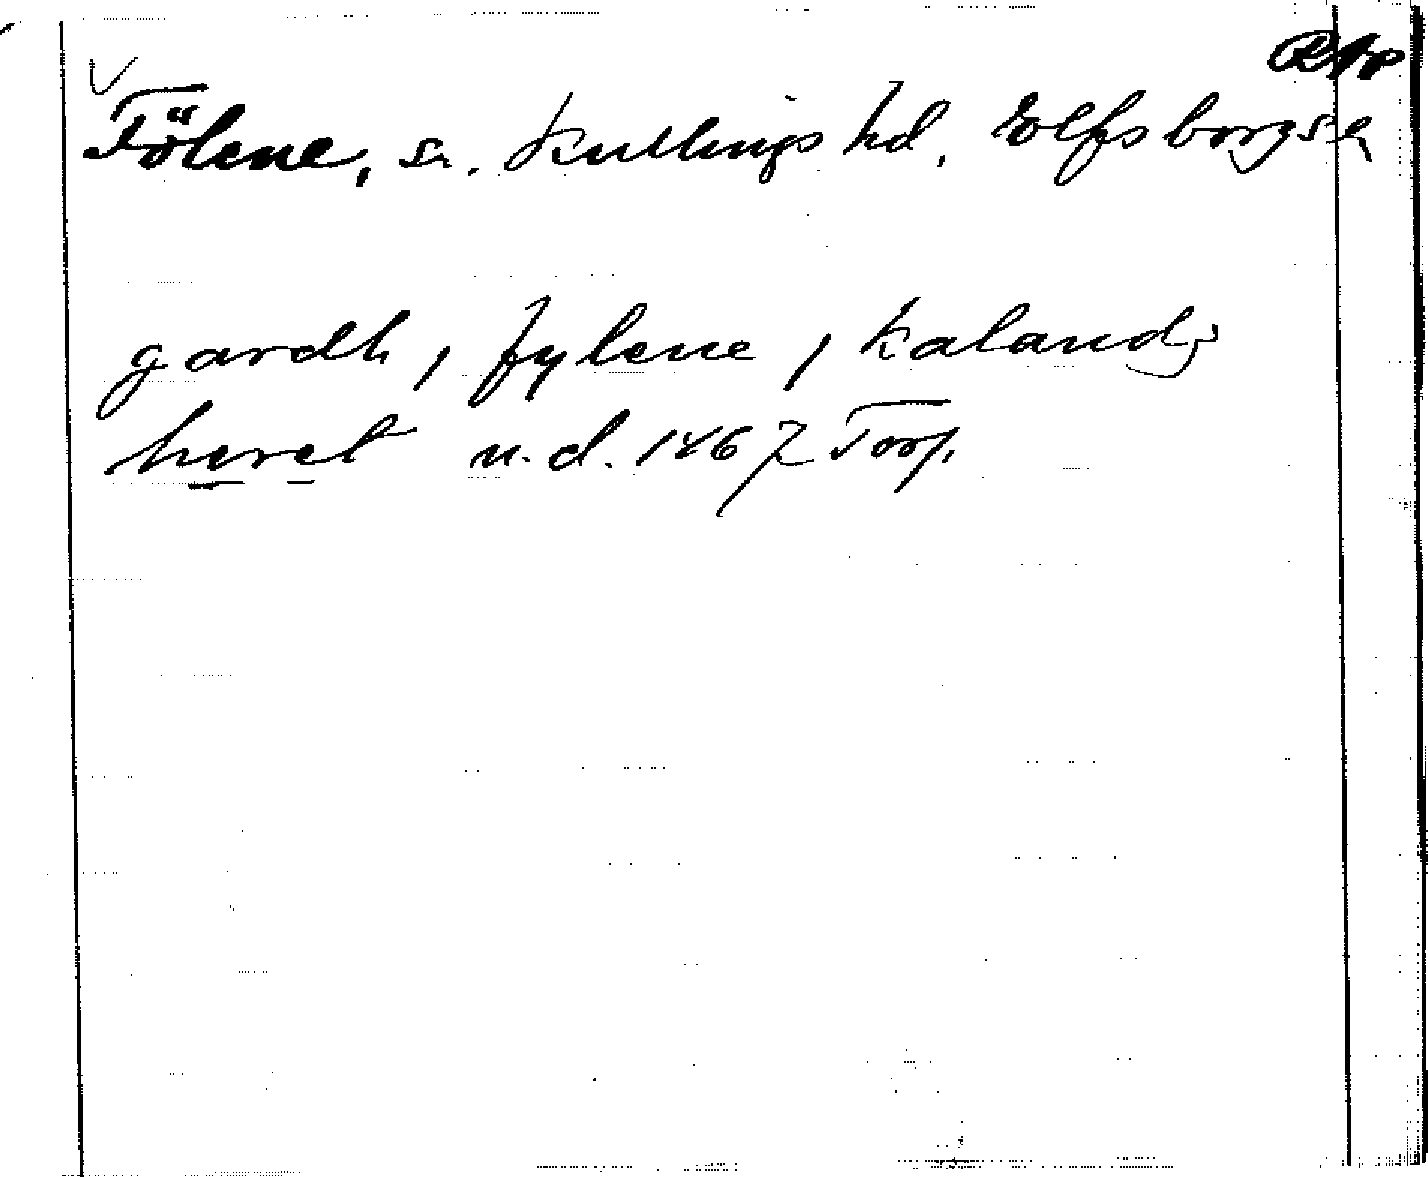 Fölene, sn. Kullings hd, Elfsborgs l
gardh, fylene, kalandz
heret u.d. 1467 Torp.